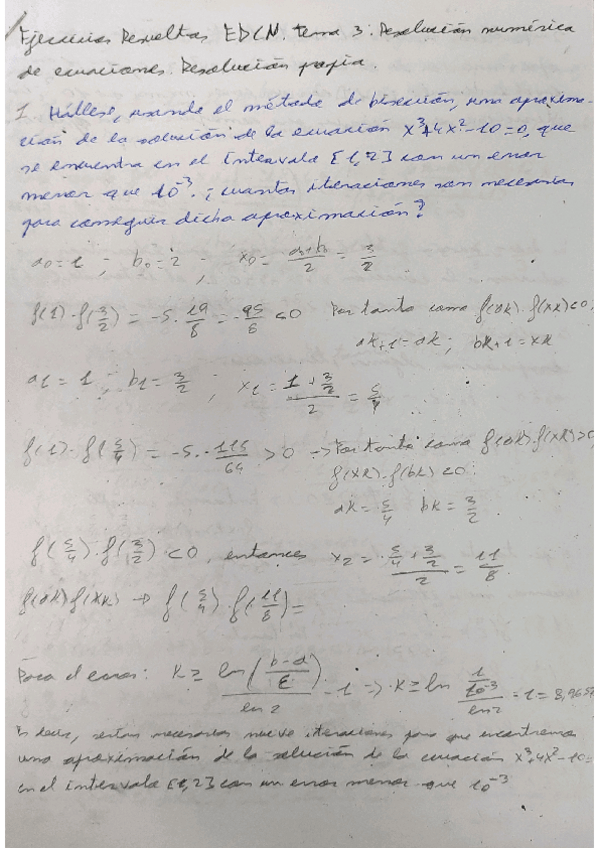 Ejercicios Resueltos EDCN. tema 3: Resolución numérica
de ecuaciones. Resolución propia.
1 Hállese, usando el método de bisección, una aproxima-
ción de la solución de la ecuación x³+4x²-10=0, que
se encuentra en el intervalo [1,2] con un error
menor que 10⁻³. ¿cuantas iteraciones son necesarias
para conseguir dicha aproximación?
a₀=1 ; b₀=2 ; x₀= (a₀+b₀)/2 = 3/2
f(1)·f(3/2) = -5·19/8 = -95/8 <0 Por tanto como f(ak)·f(xk)<0:
ak+1=ak; bk+1=xk
a1=1 ; b1=3/2 ; x1= (1+3/2)/2 = 5/4
f(1)·f(5/4) = -5·-115/64 >0 → Por tanto como f(ak)·f(xk)>0,
f(xk)·f(bk)<0:
ak=5/4 bk=3/2
f(5/4)·f(3/2)<0, entonces x2= (5/4+3/2)/2 = 11/8
f(ak)f(xk) → f(5/4)·f(11/8)=
Para el error: K ≥ ln((b-a)/ε)/ln 2 - 1 => K ≥ ln (1/10⁻³)/ln 2 - 1 = 8,965
Es decir, serían necesarias nueve iteraciones para que encontremos
una aproximación de la solución de la ecuación x³+4x²-10=
en el intervalo [1,2] con un error menor que 10⁻³